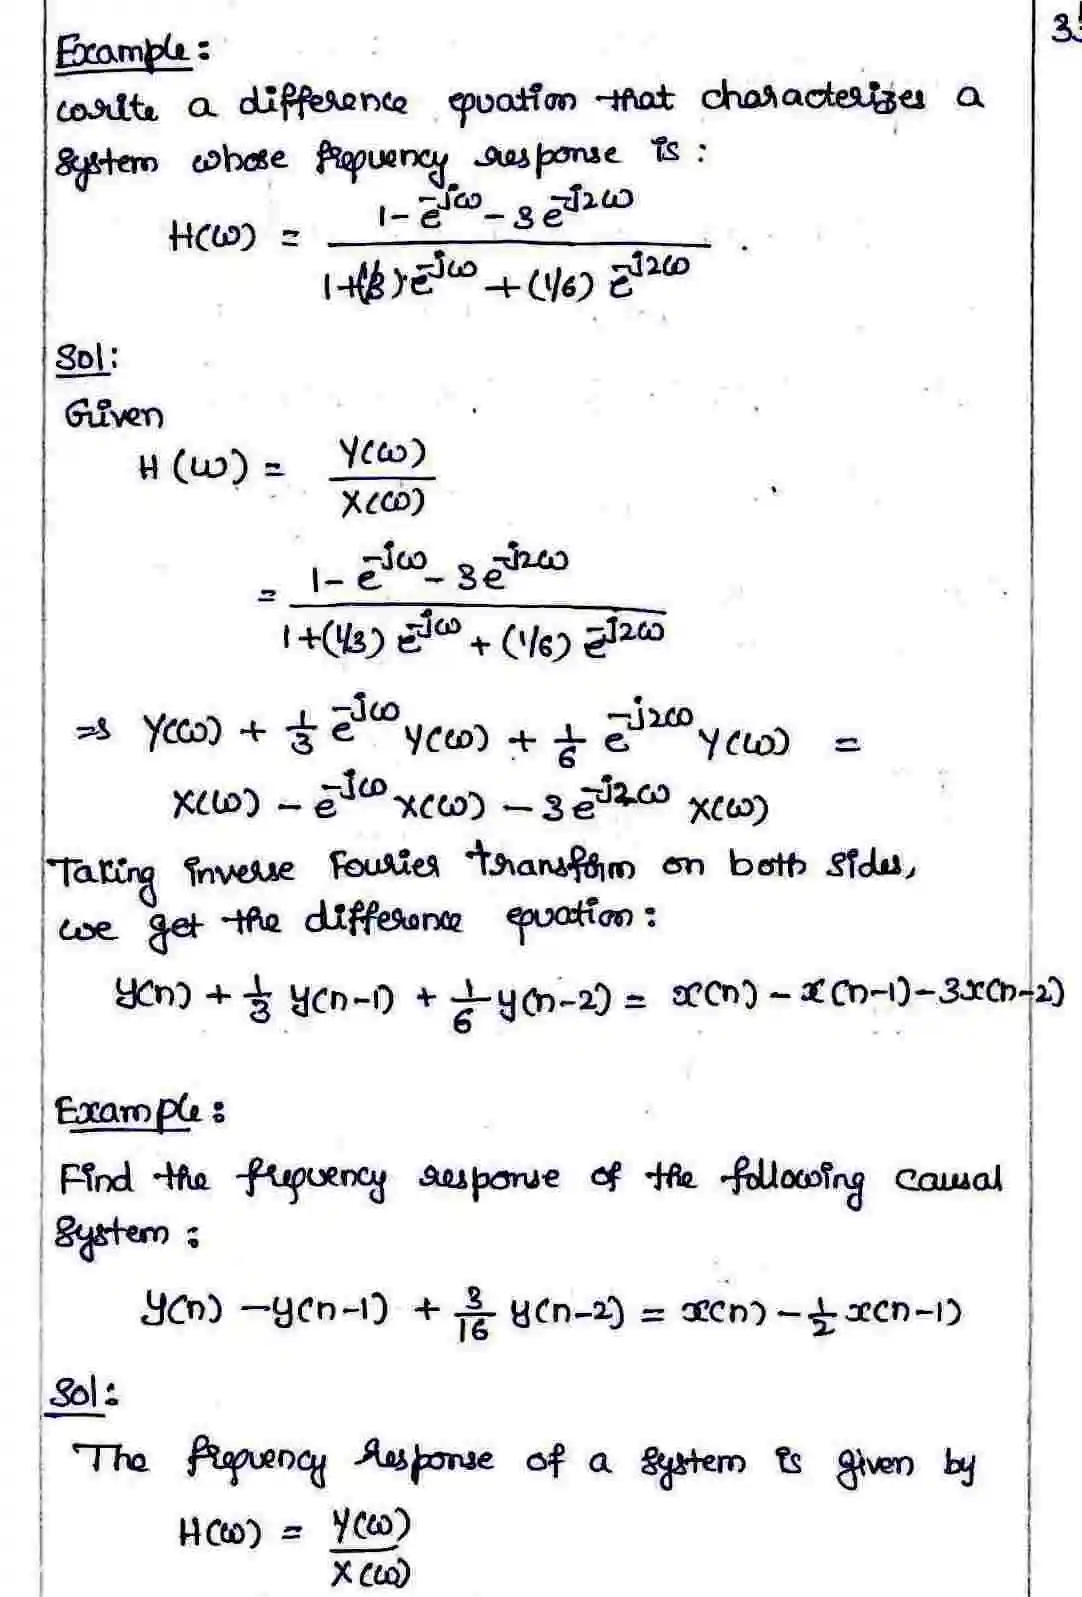 3
Example:
Write a difference equation that characterizes a
system whose frequency response is:
H(ω) = (1 - e^-jω - 3e^-j2ω) / (1+(1/3)e^-jω + (1/6) e^-j2ω).
Sol:
Given
H(ω) = Y(ω) / X(ω)
= (1 - e^-jω - 3e^-j2ω) / (1+(1/3) e^-jω + (1/6) e^-j2ω)
⇒ Y(ω) + 1/3 e^-jω Y(ω) + 1/6 e^-j2ω Y(ω) =
X(ω) - e^-jω X(ω) - 3e^-j2ω X(ω)
Taking inverse Fourier transform on both sides,
we get the difference equation:
y(n) + 1/3 y(n-1) + 1/6 y(n-2) = x(n) - x(n-1) - 3x(n-2)
Example:
Find the frequency response of the following causal
system:
y(n) - y(n-1) + 3/16 y(n-2) = x(n) - 1/2 x(n-1)
Sol:
The frequency response of a system is given by
H(ω) = Y(ω) / X(ω)